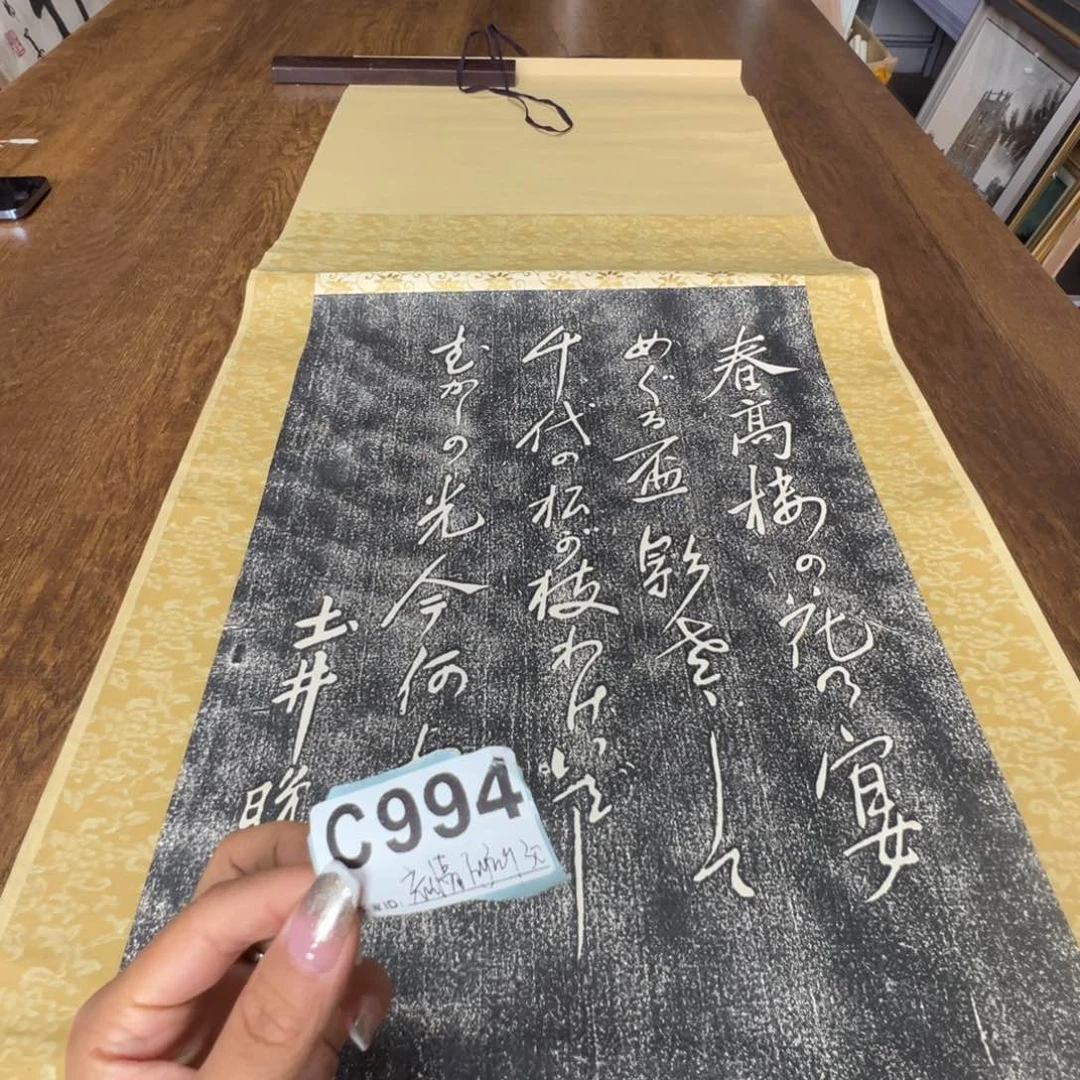 春高楼の花の宴
めぐる盃影さして
千代の松が枝わけいでし
むかしの光今何
土井晩
C994
ID: